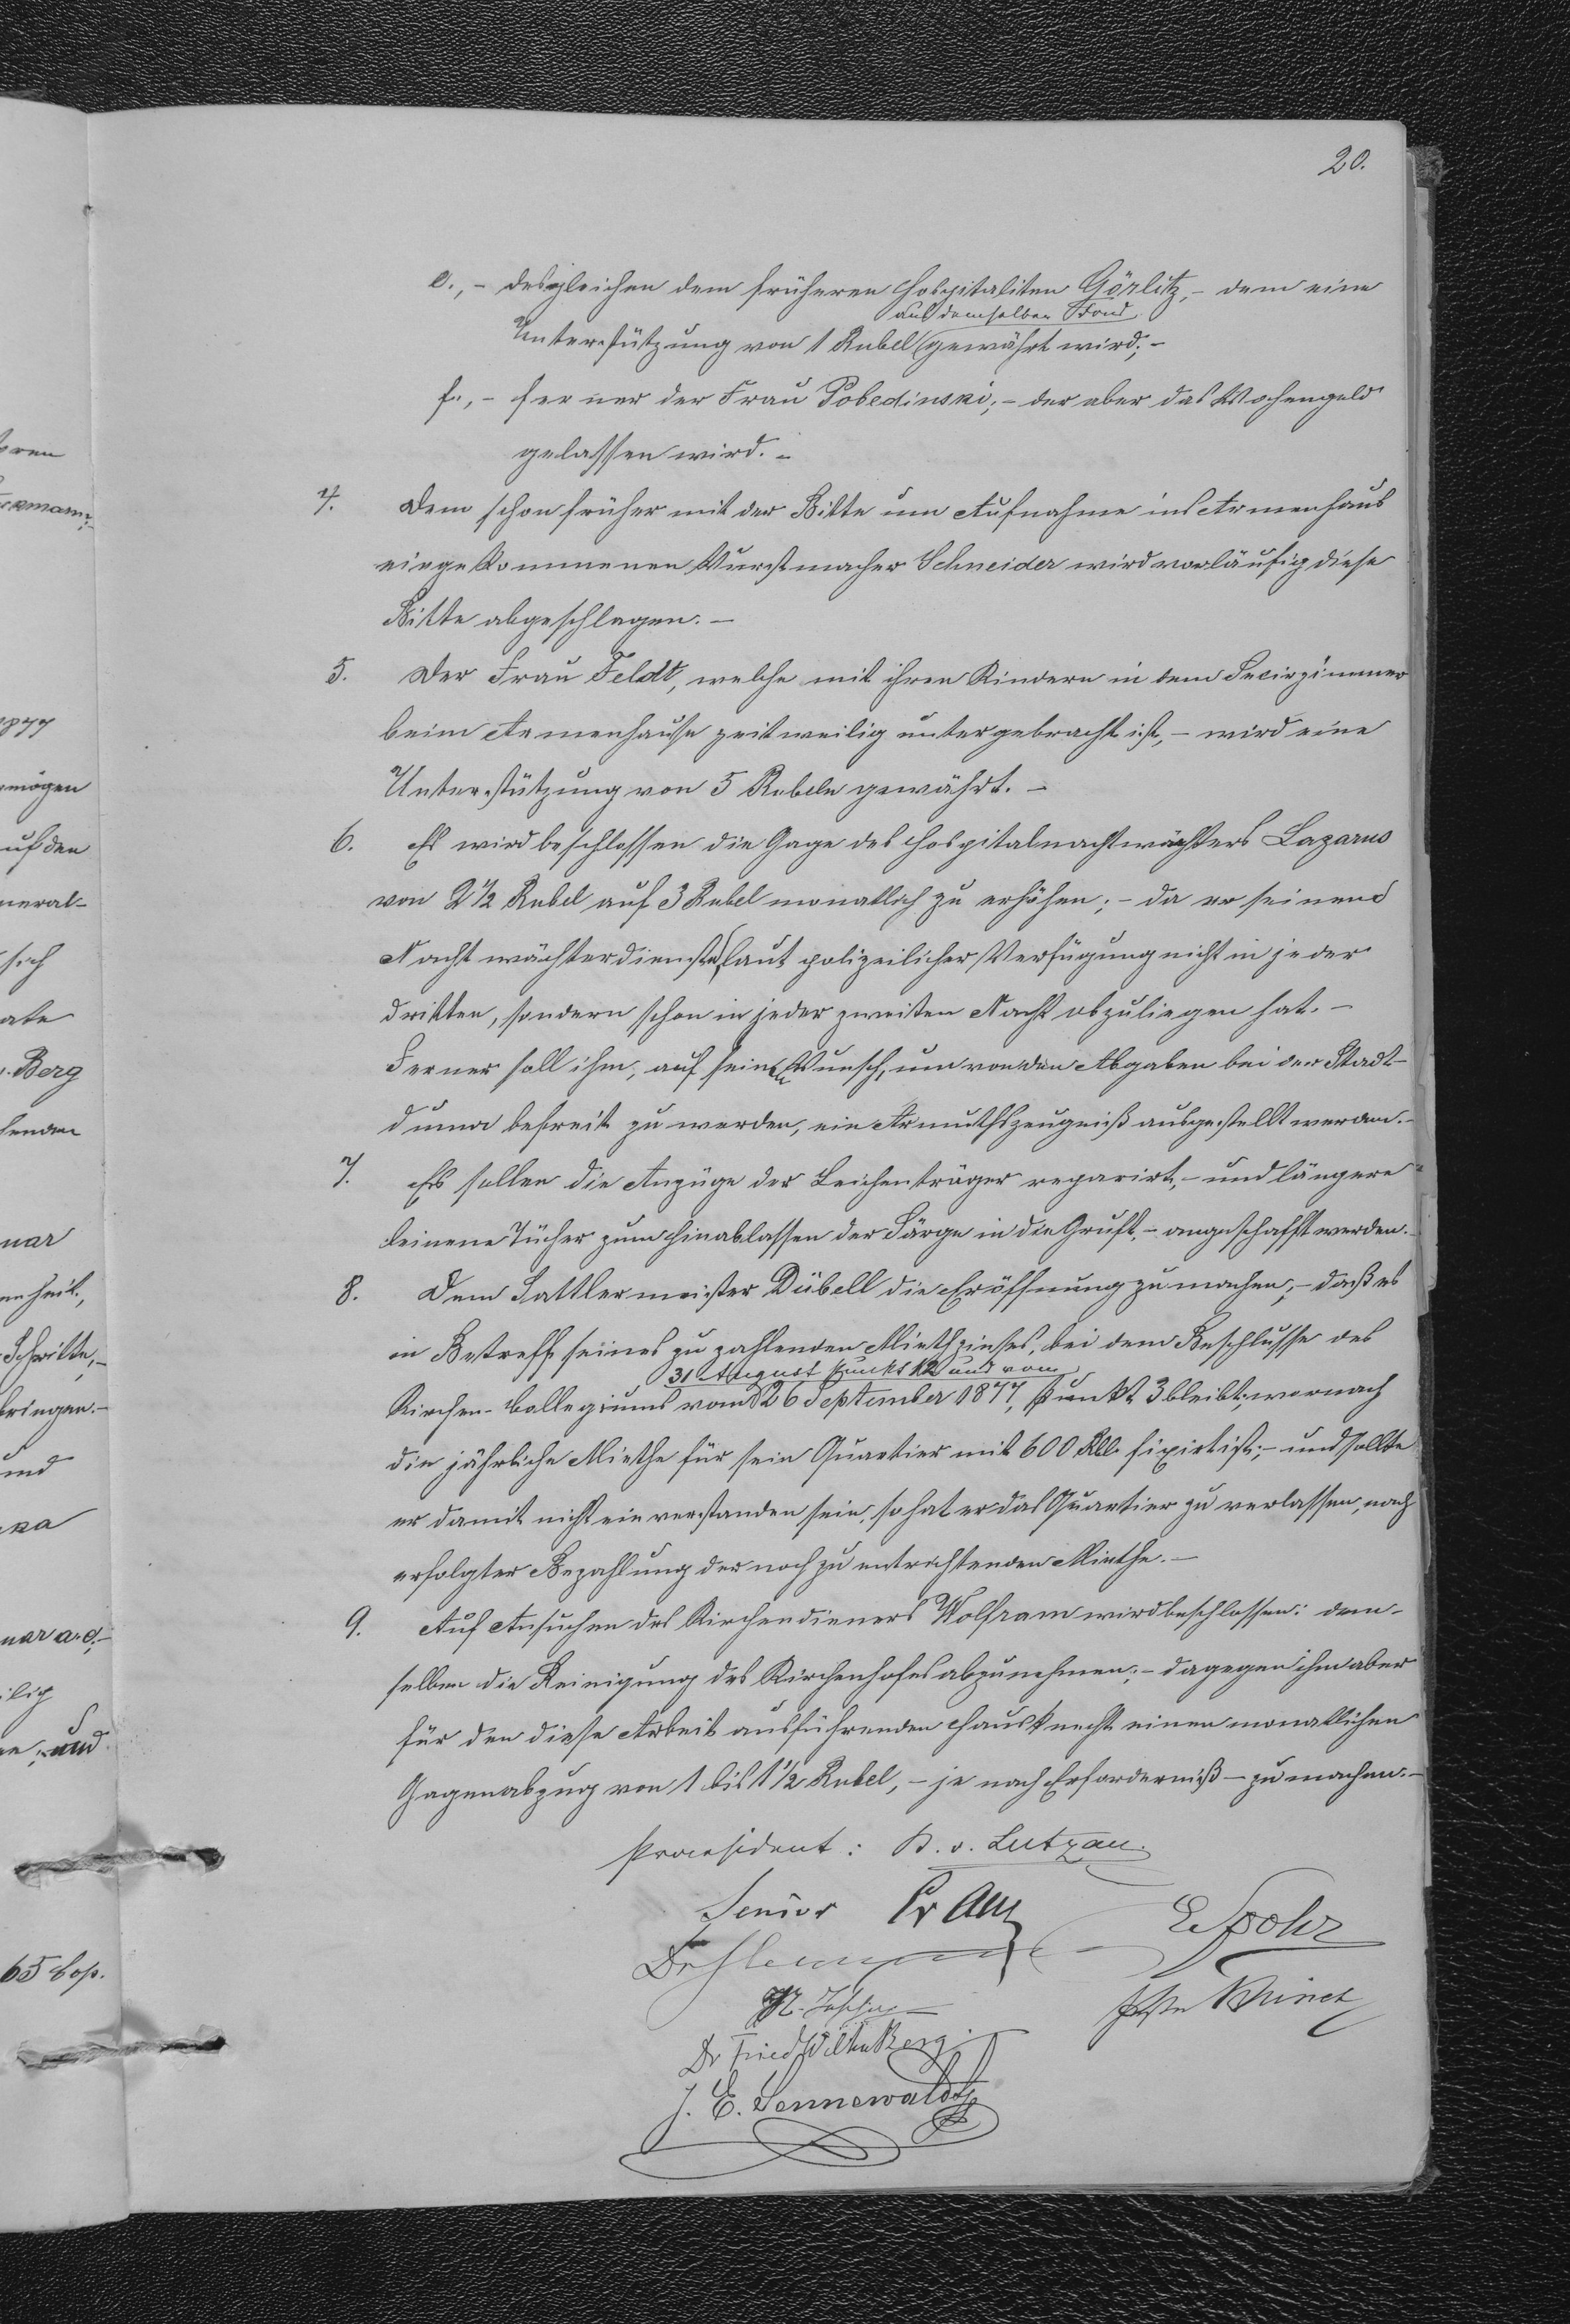 20.
e., - desgleichen dem früheren Hospitaliten Görlitz, - dem eine
aus demselben Fond
Unterstützung von 1 Rubel gewährt wird; -
f., - ferner der Frau Pobedinski; - der aber das Wochengeld
gelassen wird. -
4. Dem schon früher mit der Bitte um Aufnahme ins Armenhaus
eingekommenen Wurstmacher Schneider wird vorläufig diese
Bitte abgeschlagen. -
5. Der Frau Feldt, welche mit ihren Kindern in dem Secirzimmer
beim Armenhause zeitweilig untergebracht ist, - wird eine
Unterstützung von 5 Rubeln gewährt. -
6. Es wird beschlossen die Gage des Hospitalnachtwächters Lazarus
von 2 1/2 Rubel auf 3 Rubel monatlich zu erhöhen; - da er seinem
Nachtwächterdienste laut polizeilicher Verfügung nicht in jeder
dritten, sondern schon in jeder zweiten Nacht obzuliegen hat. -
Ferner soll ihm, auf seinen Wunsch, um von den Abgaben bei der Stadt-
duma befreit zu werden, ein Armuthszeugniß ausgestellt werden. -
7. Es sollen die Anzüge der Leichenträger reparirt, - und längere
leinene Tücher zum Hinablassen der Särge in die Gruft, - angeschafft werden. -
8. Dem Sattlermeister Dübell die Eröffnung zu machen; - daß es
in Betreff seines zu zahlenden Miethzinses, bei dem Beschlusse des
31 August Punkt 12 und vom
Kirchen-Collegiums vom 26 September 1877, Punkt 3 bleibt, wornach
die jährliche Miethe für sein Quartier mit 600 Rbl. fixirt ist; - und sollte
er damit nicht einverstanden sein, so hat er das Quartier zu verlassen, nach
erfolgter Bezahlung der noch zu entrichtenden Miethe. -
9. Auf Ansuchen des Kirchendieners Wolfram wird beschlossen: dem-
selben die Reinigung des Kirchenhofes abzunehmen; - dagegen ihm aber
für den diese Arbeit ausführenden Hausknecht einen monatlichen
Gagenabzug von 1 bis 1 1/2 Rubel, - je nach Erforderniß - zu machen. -
Praesident: B. v. Lutzau.
Senior
E. Spohr
Dr
Dr Fried Wilh Berg.
J. E. Sennewaldt
1877
mögen
auf den
neral-
sich
. Berg
nuar
Schritte, -
bringen. -
und
nuar a. c. -
und
65 Cop.